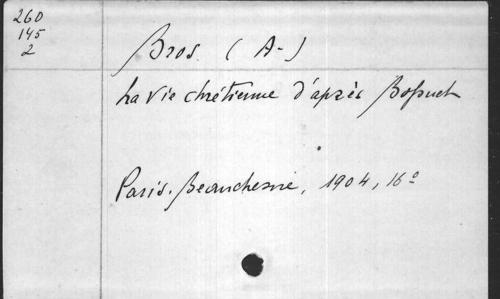 260
145
2
Bros. (A-)
La vie chrétienne d'après Bossuet
Paris. Beauchesne, 1904, 16º